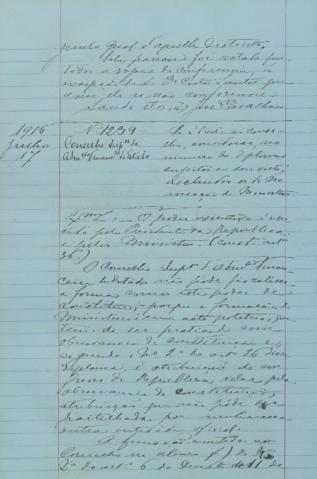 queula qual d'aquelle Districto.
Este parecer foi votado por
todos os vogaes da conferencia, á
excepção do
sair de se não conferencia
Saude etc. a) José Carvalhaes
1916
Julho
17
Nº 1239
Conselho Supr de
Admão Financra do Estado
Se é licito ao conse-
lho, averiguar, no
numero de diplomas
sujeitos ao seu visto,
os decretos de no-
meação de Ministros
O poder executivo é exer-
cido pelo Presidente da Republica
e pelos Ministros (Const. artº
36.)
O Conselho Supr d'Admão Finan-
ceira do Estado não póde fiscalisar
a forma como este poder se
constitue, porque a formação de
Ministerios é um acto politico, que
tem de ser praticado com
observancia da constituição e,
segundo o Nº 2º do artº 26 deste
diploma, é attribuição do con-
gresso da Republica, velar pela
observancia da constituição,
attribuição que não póde ser
partilhada por nenhuma
outra entidade official.
A funcção commettida ao
Conselho na alinea f) do Nº
2º do artº 6 do Decreto de 11 de